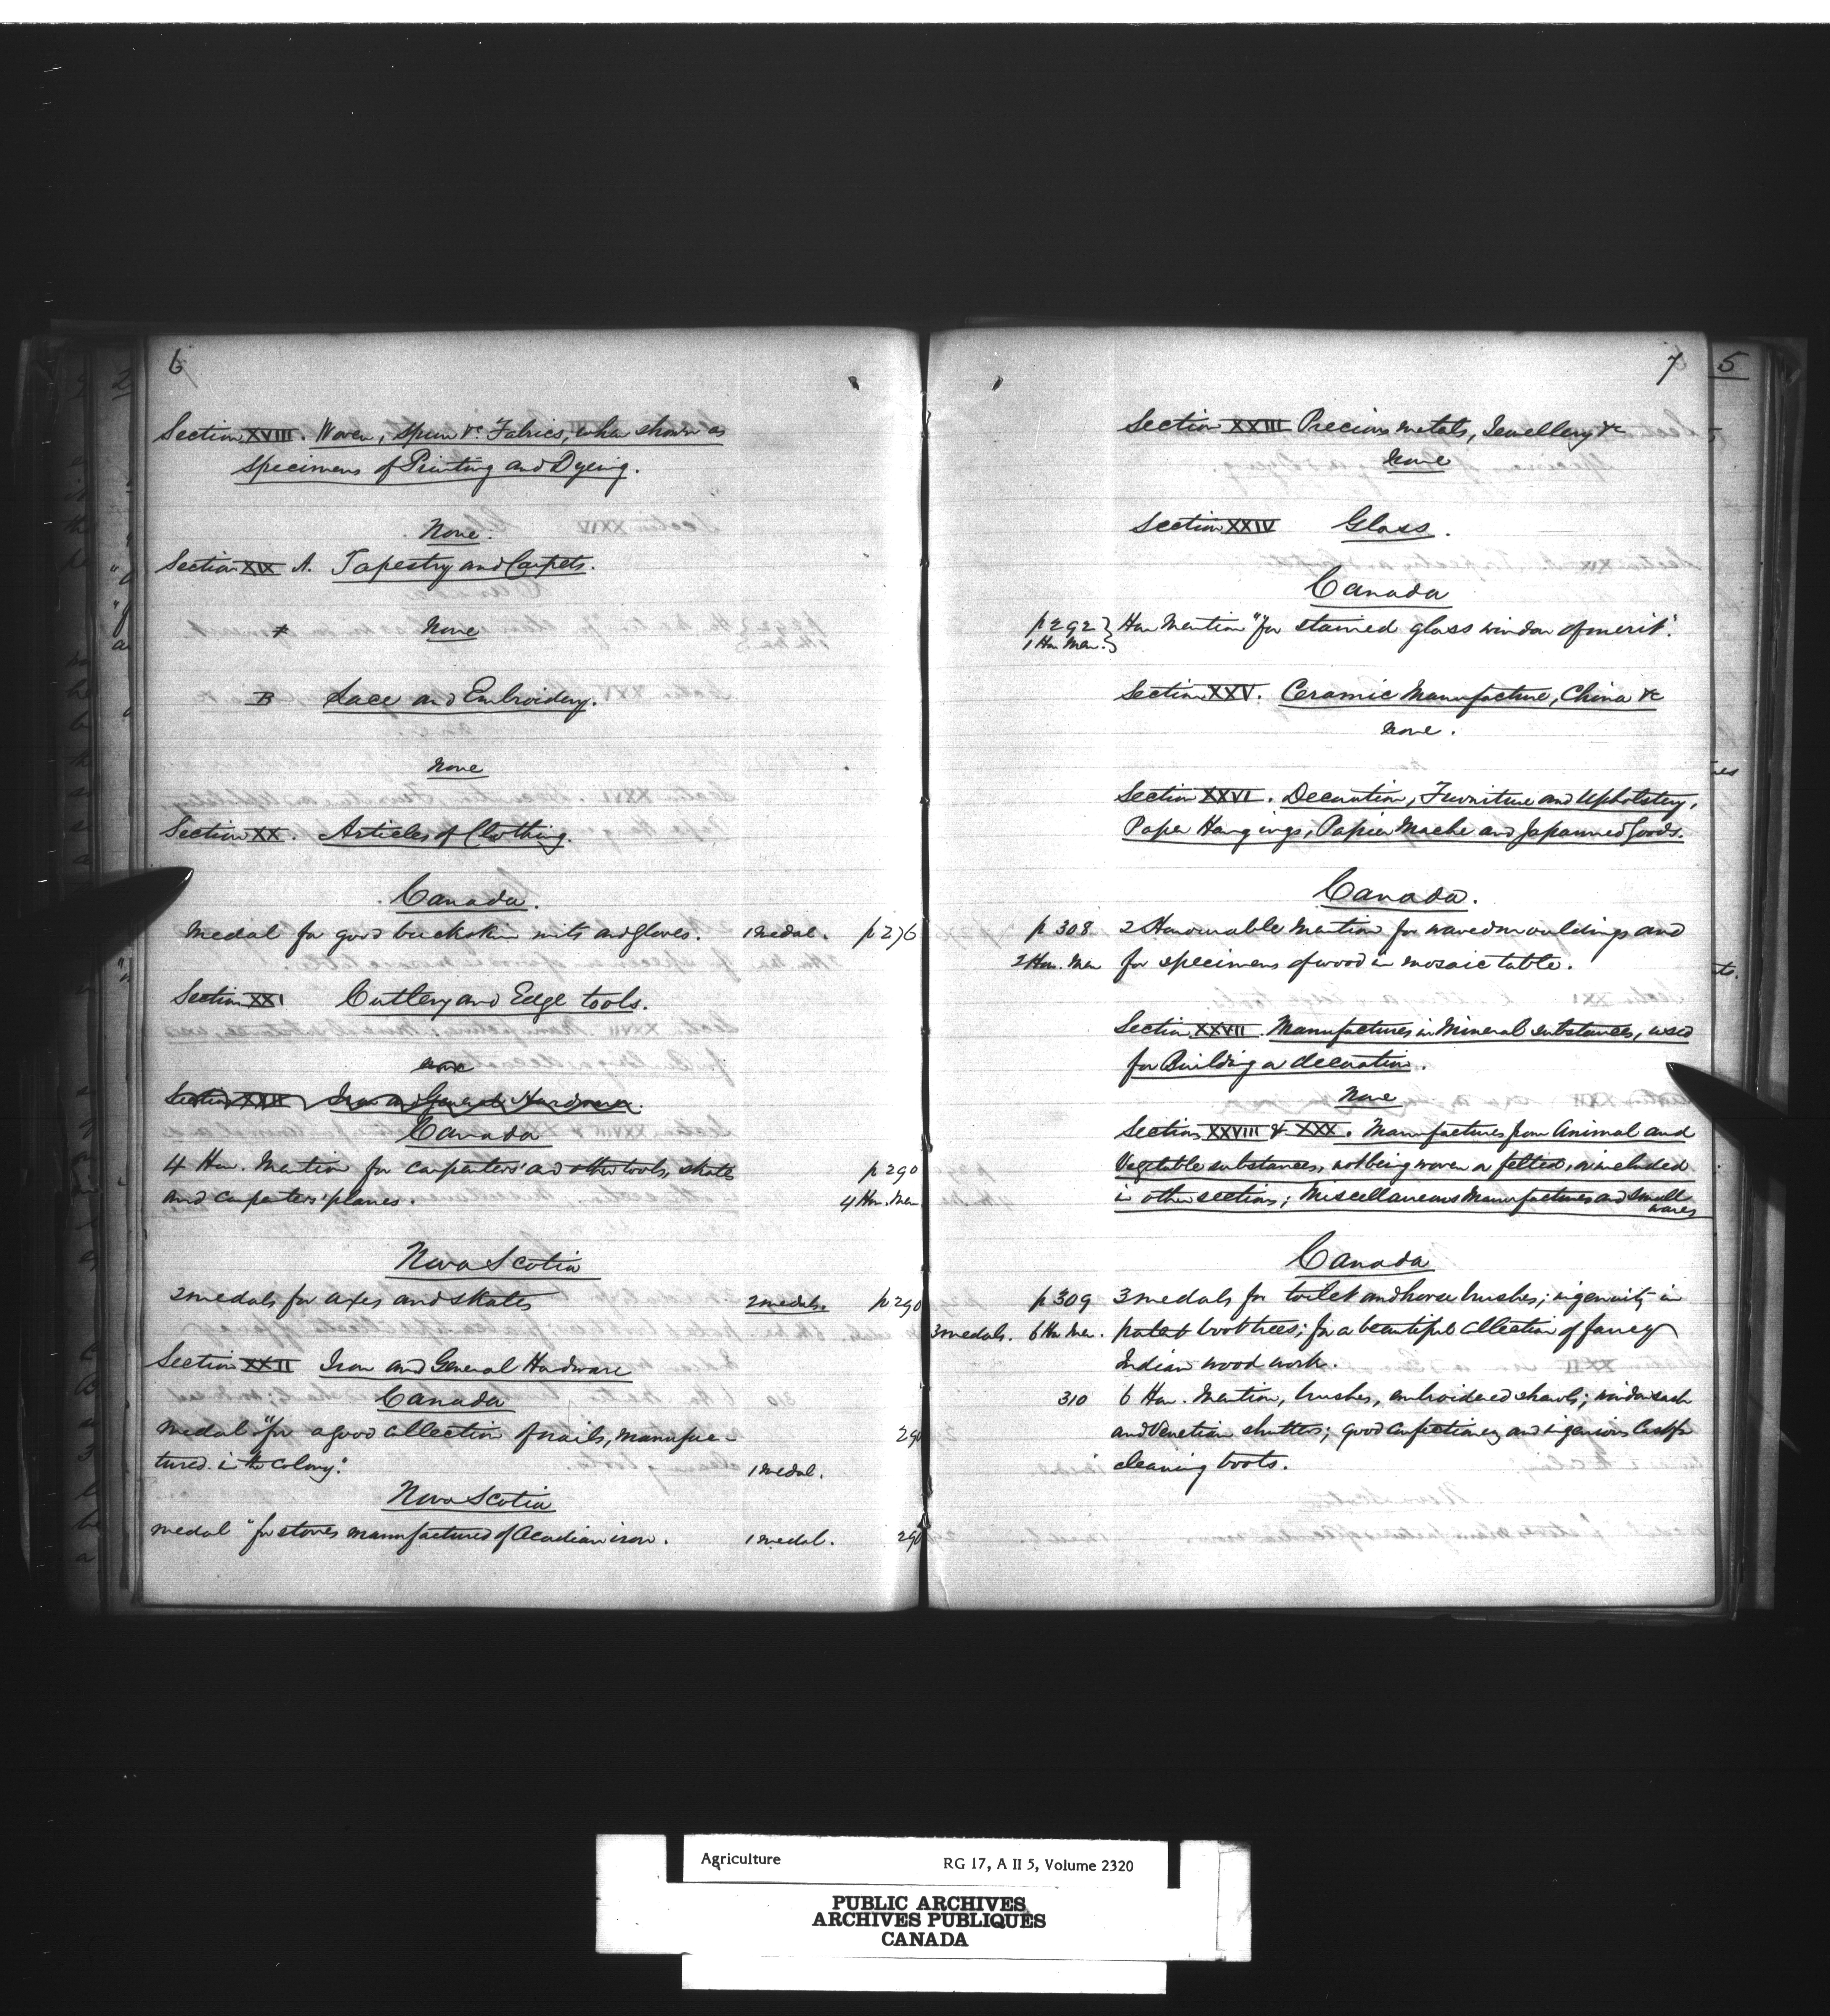 6
Section XVIII. Woven, Spun &c. Fabrics, when shown as
specimens of Printing and Dyeing.
None.
Section XIX A. Tapestry and Carpets.
None
B Lace and Embroidery.
None
Section XX. Articles of Clothing.
Canada.
Medal for good buckskin mits and gloves. 1 medal. p 276
Section XXI Cutlery and Edge tools.
none
Section XXII Iron and General Hardware.
Canada
4 Hon. Mention for carpenters' and other tools, skates p 290
and carpenters' planes. 4 Hon. Men
Nova Scotia
2 medals for axes and skates 2 medals. p 290
Section XXII Iron and General Hardware
Canada
Medal "for a good collection of nails, manufac- 290
tured in the Colony." 1 medal.
Nova Scotia
Medal "for stoves manufactured of Acadian iron. 1 medal. 290
7
Section XXIII Precious metals, Jewellery &c
None
Section XXIV Glass.
Canada
p 292 } Hon Mention "for stained glass window of merit".
1 Hon Men. }
Section XXV. Ceramic Manufacture, China &c
None.
Section XXVI. Decoration, Furniture and Upholstery,
Paper Hangings, Papier Mache and Japanned Goods.
Canada.
p 308 2 Honourable Mention for waved mouldings and
2 Hon. Men for specimens of wood in mosaic table.
Section XXVII. Manufactures in Mineral substances, used
for Building or decoration.
None
Sections XXVIII & XXX. Manufactures from Animal and
Vegetable substances, not being woven or felted, or included
in other sections; Miscellaneous Manufactures and Small
wares
Canada
p 309 3 medals for toilet and horse brushes; ingenuity in
3 medals. 6 Hon Men. patent boot trees; for a beautiful collection of fancy
Indian wood work.
310 6 Hon. Mention, brushes, embroidered shawls; window sash
and Venetian shutters; good confectionery and ingenious
cleaning boots.
5
Agriculture RG 17, A II 5, Volume 2320
PUBLIC ARCHIVES
ARCHIVES PUBLIQUES
CANADA